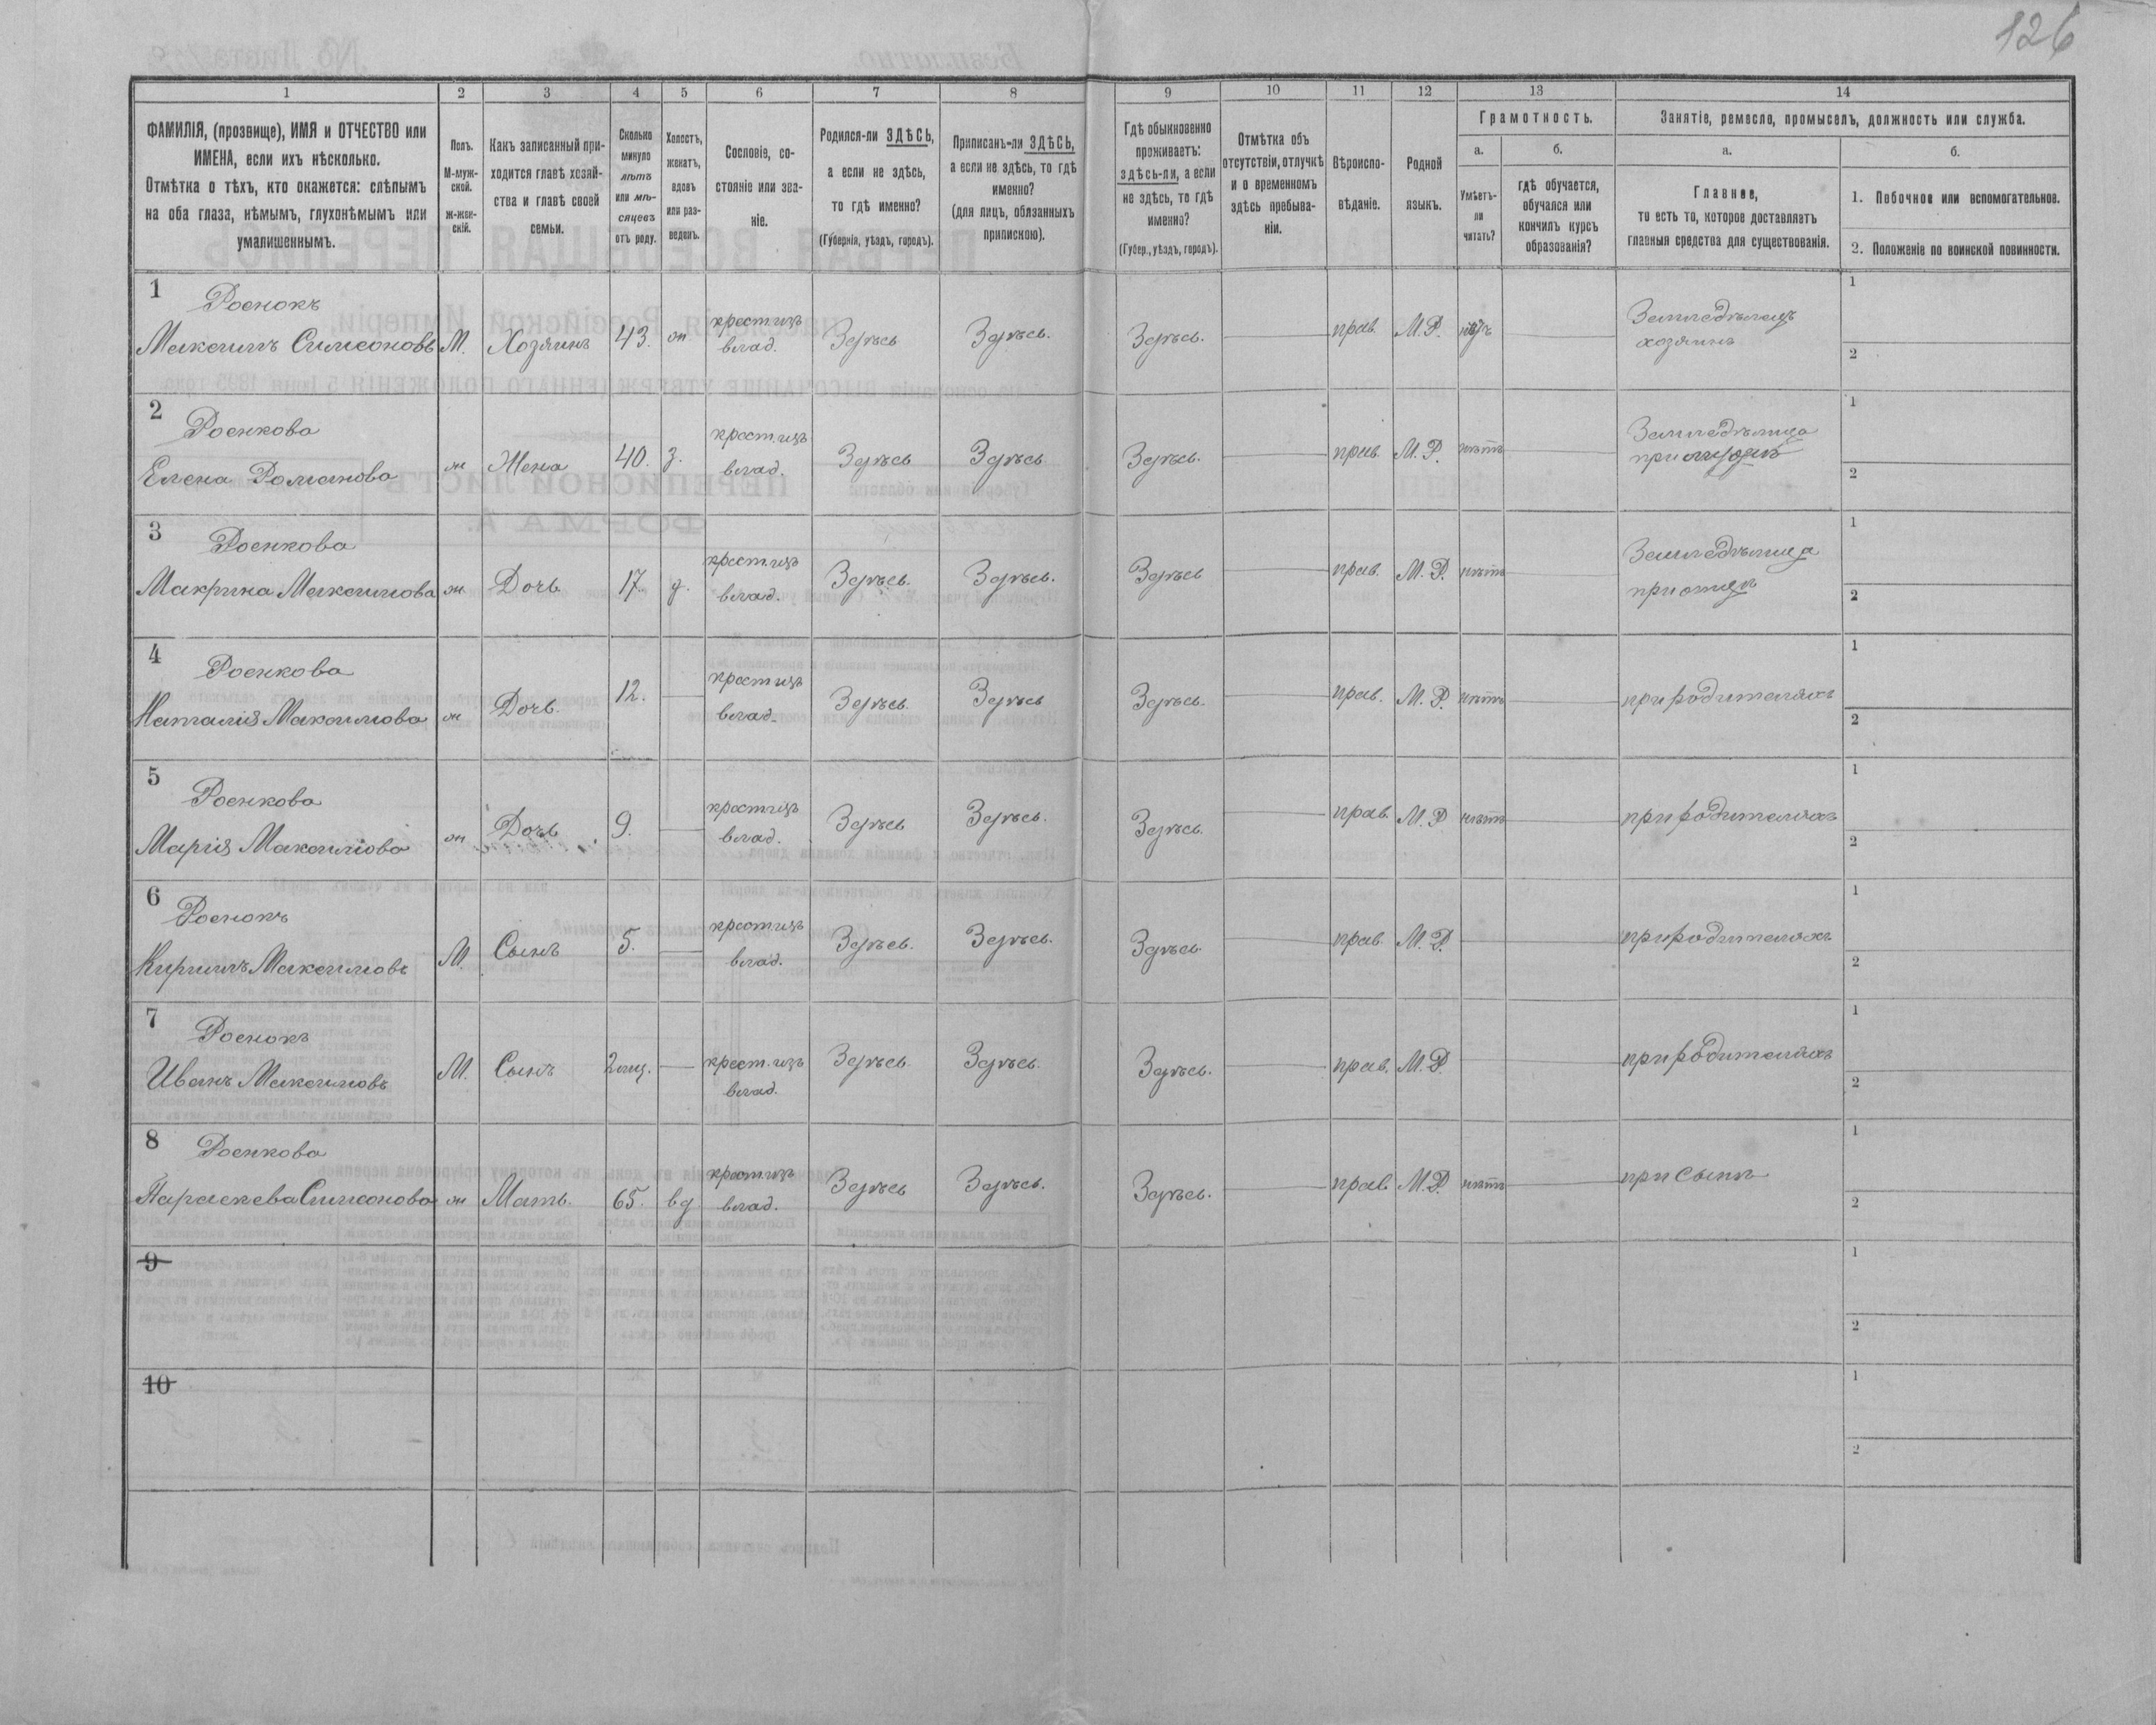 126
1 2 3 4 5 6 7 8 9 10 11 12 13 14
ФАМИЛІЯ, (прозвище), ИМЯ и ОТЧЕСТВО или
ИМЕНА, если ихъ нѣсколько.
Отмѣтка о тѣхъ, кто окажется: слѣпымъ
на оба глаза, нѣмымъ, глухонѣмымъ или
умалишеннымъ.
Полъ.
М-муж-
ской.
Ж-жен-
скій.
Какъ записанный при-
ходится главѣ хозяй-
ства и главѣ своей
семьи.
Сколько
минуло
лѣтъ
или мѣ-
сяцевъ
отъ роду.
Холостъ,
женатъ,
вдовъ
или раз-
веденъ.
Сословіе, со-
стояніе или зва-
ніе.
Родился-ли ЗДѢСЬ,
а если не здѣсь,
то гдѣ именно?
(Губернія, уѣздъ, городъ).
Приписанъ-ли ЗДѢСЬ,
а если не здѣсь, то гдѣ
именно?
(для лицъ, обязанныхъ
припискою).
Гдѣ обыкновенно
проживаетъ:
здѣсь-ли, а если
не здѣсь, то гдѣ
именно?
(Губер., уѣздъ, городъ).
Отмѣтка объ
отсутствіи, отлучкѣ
и о временномъ
здѣсь пребыва-
ніи.
Вѣроиспо-
вѣданіе.
Родной
языкъ.
Грамотность.
а.
Умѣетъ-
ли
читать?
б.
гдѣ обучается,
обучался или
кончилъ курсъ
образованія?
Занятіе, ремесло, промыселъ, должность или служба.
а.
Главное,
то есть то, которое доставляетъ
главныя средства для существованія.
б.
1. Побочное или вспомогательное.
2. Положеніе по воинской повинности.
1
Роенокъ
Максимъ Симеоновъ М. Хозяинъ 43. ж крест. изъ
влад. Здѣсь Здѣсь. Здѣсь. прав. М.Р. Земледѣлецъ
хозяинъ
1
2
2
Роенкова
Елена Романова ж Жена 40. з. крест. изъ
влад. Здѣсь Здѣсь Здѣсь. прав. М.Р. нѣтъ Земледѣлица
при
1
2
3
Роенкова
Макрина Максимова ж Дочь 17. д. крест. изъ
влад. Здѣсь. Здѣсь. Здѣсь прав. М.Р. нѣтъ Земледѣлица
при отцѣ
1
2
4
Роенкова
Наталія Максимова ж Дочь. 12. крест изъ
влад. Здѣсь. Здѣсь Здѣсь. прав. М.Р. нѣтъ при родителяхъ
1
2
5
Роенкова
Марія Максимова ж Дочь 9. крест изъ
влад. Здѣсь Здѣсь. Здѣсь. прав. М.Р нѣтъ при родителяхъ
1
2
6
Роенокъ
Кириллъ Максимовъ М. Сынъ 5. крест. изъ
влад. Здѣсь. Здѣсь. Здѣсь прав. М.Р. при родителяхъ
1
2
7
Роенокъ
Иванъ Максимовъ М. Сынъ 2 мц. крест. изъ
влад. Здѣсь Здѣсь. Здѣсь. прав. М.Р при родителяхъ
1
2
8
Роенкова
Параскева Симеонова ж Мать. 65. вд крест. изъ
влад. Здѣсь Здѣсь. Здѣсь. прав. М.Р. нѣтъ при сынѣ
1
2
9
1
2
10
1
2